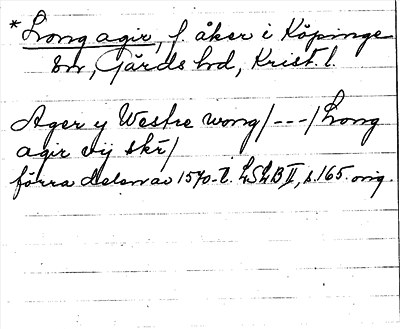 * Long agir, f. åker i Köpinge
sn, Gärds hd, Krist. l.
Ager y Westre wong/---/Long
agir vij skr/
förra delen av 1570-t. LSLB II, s. 165. orig.